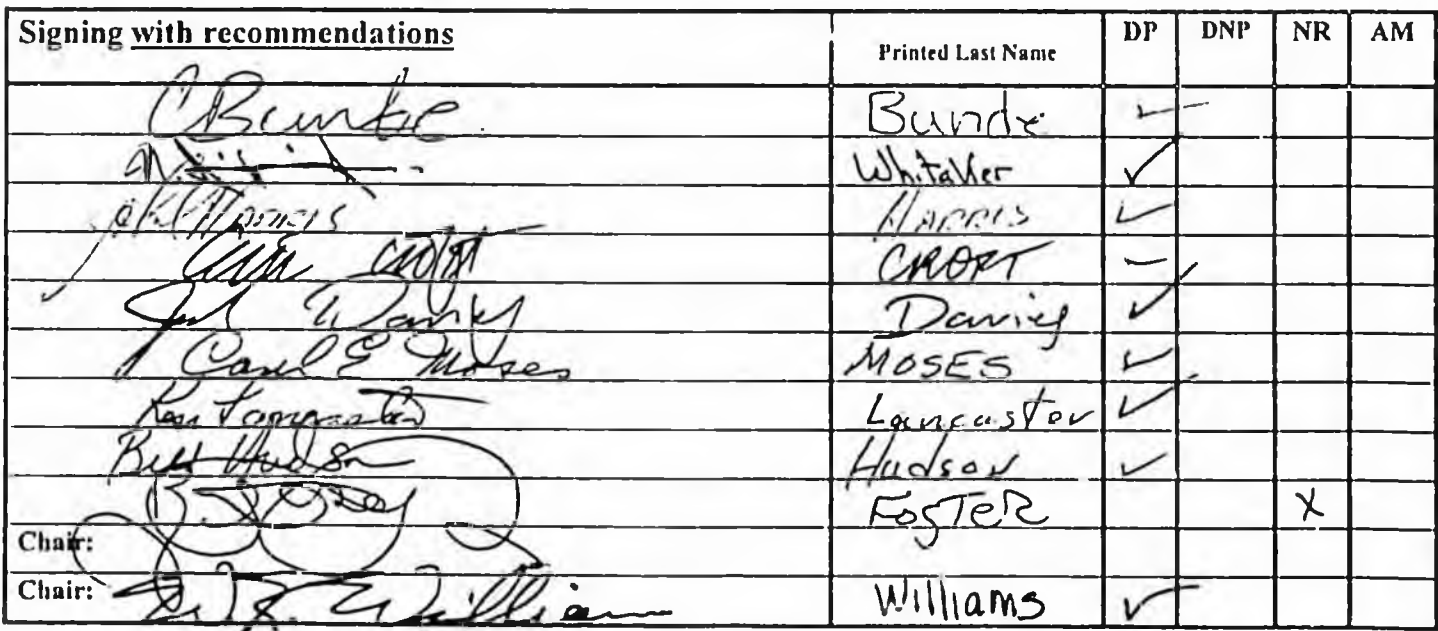 Signing with recommendations Printed Last Name DP DNP NR AM
CBunde Bunde ✓
Whitaker ✓
Harris HARRIS ✓
Croft CROFT ✓
Davies Davies ✓
Carl E Moses MOSES ✓
Ken Lancaster Lancaster ✓
Bill Hudson Hudson ✓
FosTeR X
Chair:
Chair: Williams Williams ✓